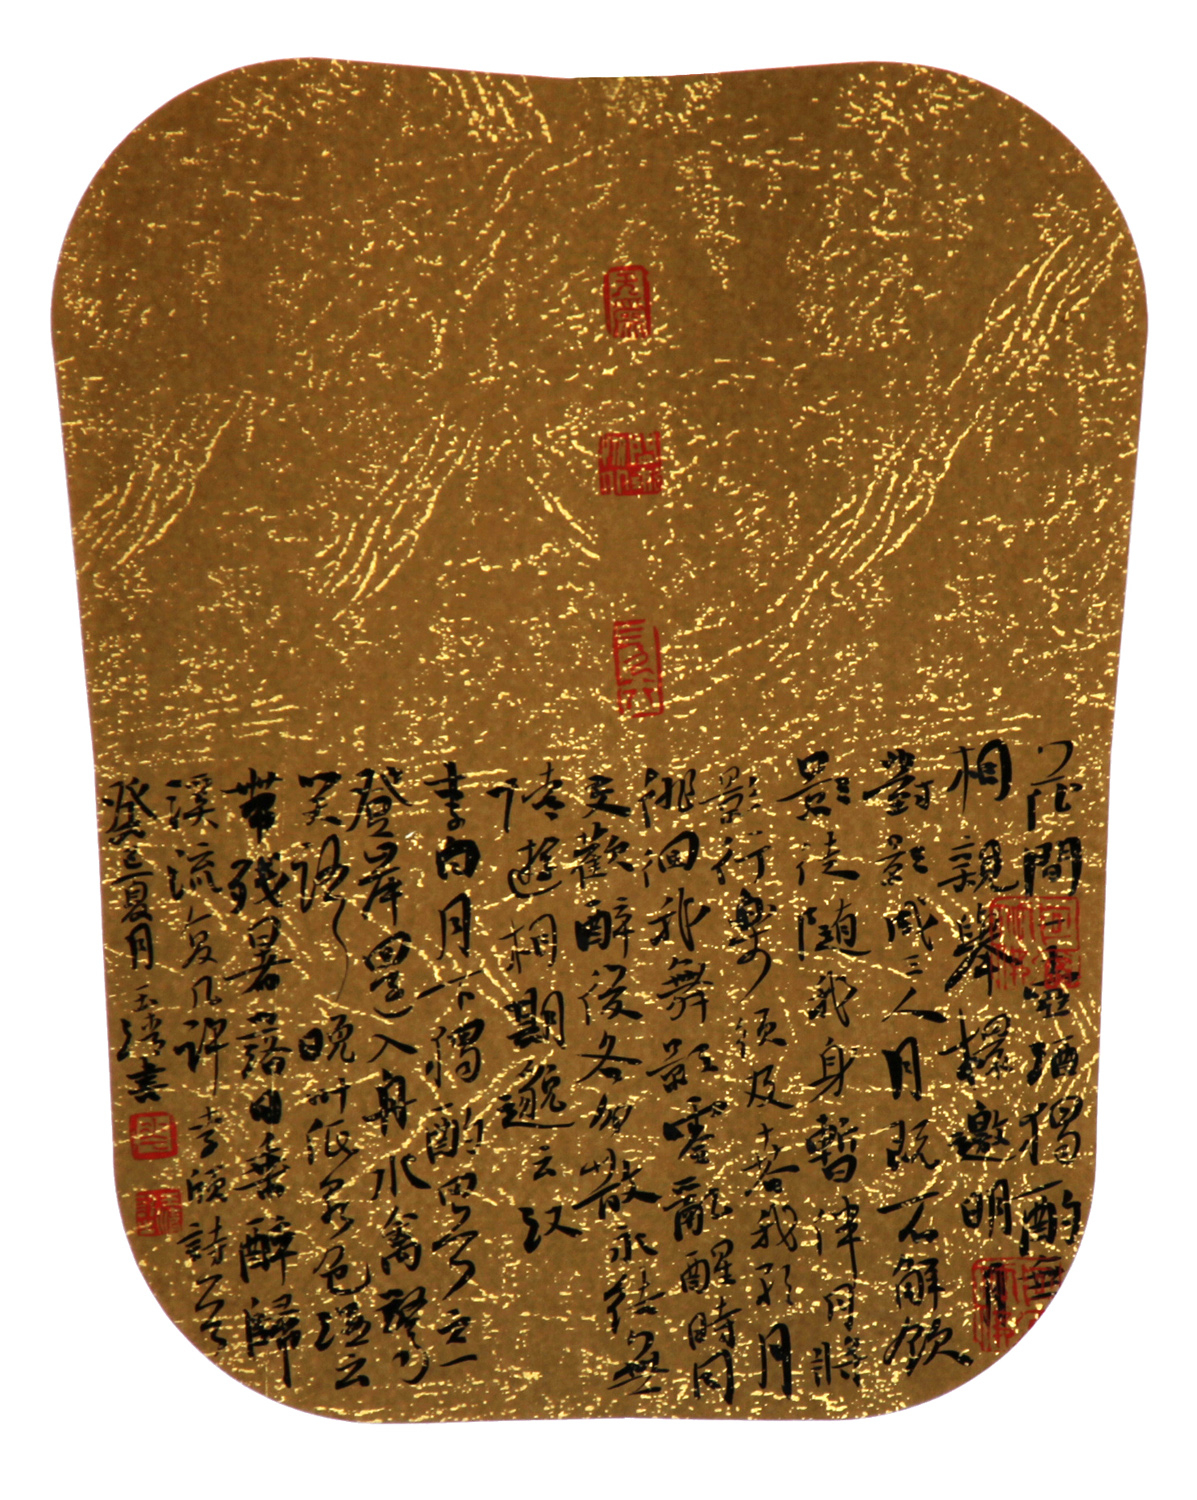 花間一壺酒獨酌無
相親舉杯邀明月
對影成三人月既不解飲
影徒隨我身暫伴月將
影行樂須及春我歌月
徘徊我舞影零亂醒時同
交歡醉後各分散永結無
情遊相期邈云汉
李白月下獨酌四首之一
登岸還入舟水禽驚
笑語晚叶低众色濕云
帶殘暑落日乘醉歸
溪流复几許李頎詩一首
癸巳夏月書